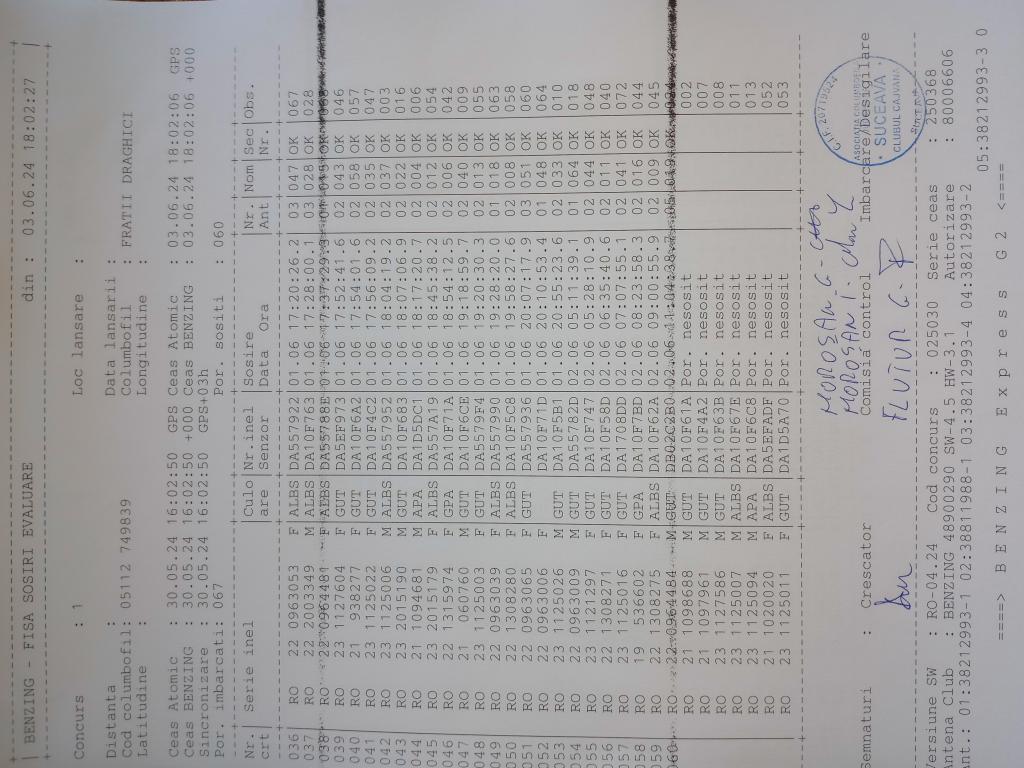 | BENZING - FISA SOSIRI EVALUARE din : 03.06.24 18:02:27 |
Concurs : 1 Loc lansare :
Distanta : Data lansarii :
Cod columbofil: 05112 749839 Columbofil : FRATII DRAGHICI
Latitudine : Longitudine :
Ceas Atomic : 30.05.24 16:02:50 GPS Ceas Atomic : 03.06.24 18:02:06 GPS
Ceas BENZING : 30.05.24 16:02:50 +000 Ceas BENZING : 03.06.24 18:02:06 +000
Sincronizare : 30.05.24 16:02:50 GPS+03h
Por. imbarcati: 067 Por. sositi : 060
Nr.| Serie inel |Culo|Nr.inel |Sosire |Nr.|Nom|Sec|Obs.
crt| |are |Senzor |Data Ora |Ant| |Nr.|
036 RO 22 0963053 F ALBS DA557922 01.06 17:20:26.2 03 047 OK 067
037 RO 22 2003349 M ALBS DA10F763 01.06 17:28:06.1 03 028 OK 028
038 RO 22 0964481 F ALBS
039 RO 23 1127604 F GUT DA5EF973 01.06 17:52:41.6 02 043 OK 046
040 RO 21 938277 F GUT DA10F6A2 01.06 17:54:01.6 02 058 OK 057
041 RO 23 1125022 F GUT DA10F4C2 01.06 17:56:09.2 02 035 OK 047
042 RO 23 1125006 M ALBS DA557952 01.06 18:04:19.2 02 037 OK 003
043 RO 22 2015190 M GUT DA10F683 01.06 18:07:06.9 02 022 OK 016
044 RO 21 1094681 M APA DA1D5DC1 01.06 18:17:20.7 02 004 OK 006
045 RO 23 2015179 F ALBS DA557A19 01.06 18:45:38.2 02 012 OK 054
046 RO 22 1315974 F GPA DA10F71A 01.06 18:54:12.5 02 006 OK 042
047 RO 21 060760 M GUT DA10F6CE 01.06 19:18:59.7 02 040 OK 009
048 RO 23 1125003 F GUT DA5579F4 01.06 19:20:30.3 02 013 OK 055
049 RO 22 0963039 F ALBS DA557990 01.06 19:28:20.0 01 018 OK 063
050 RO 22 1308280 F ALBS DA10F5C8 01.06 19:58:27.6 02 008 OK 058
051 RO 22 0963065 F GUT DA557936 01.06 20:08:17.9 03 051 OK 060
052 RO 22 0963006 F DA10F71D 01.06 20:10:53.4 01 048 OK 064
053 RO 23 1125026 M GUT DA10F5B1 01.06 20:55:23.6 02 033 OK 010
054 RO 22 0963009 M GUT DA55782D 02.06 05:11:39.1 01 064 OK 018
055 RO 23 1121297 F GUT DA10F747 02.06 05:28:10.9 02 044 OK 048
056 RO 22 1308271 F GUT DA10F58D 02.06 06:35:40.6 02 011 OK 040
057 RO 23 1125016 F GUT DA1708DD 02.06 07:07:55.1 02 041 OK 072
058 RO 19 536602 F GPA DA10F7BD 02.06 08:23:58.3 02 016 OK 044
059 RO 22 1308275 F ALBS DA10F62A 02.06 09:00:55.9 02 009 OK 045
060 RO 22 0964484 M GUT DB02C2B0
RO 21 1098688 M GUT DA10F61A Por. nesosit 002
RO 21 1097961 M GUT DA10F4A2 Por. nesosit 007
RO 23 1127586 M GUT DA10F63B Por. nesosit 008
RO 23 1125007 M ALBS DA10F67E Por. nesosit 011
RO 23 1125094 M APA DA10F6C8 Por. nesosit 013
RO 21 1020020 F ALBS DA5EFADF Por. nesosit 052
RO 23 1125011 F GUT DA1D5A70 Por. nesosit 053
MOROSAN G.
MOROSAN I.
Semnaturi : Crescator Comisia control Imbarcare/Desigilare
FLUTUR G.
C.I.F. 20719524
SUCEAVA
CLUBUL CAJVANA
Versiune SW : RO-04.24 Cod concurs : 025030 Serie ceas : 250368
Antena Club : BENZING 48900290 SW-4.5 HW-3.1 Autorizare : 80006606
Ant.: 01:38212993-1 02:38811988-1 03:38212993-4 04:38212993-2 05:38212993-3 0
====> B E N Z I N G E x p r e s s G 2 <====